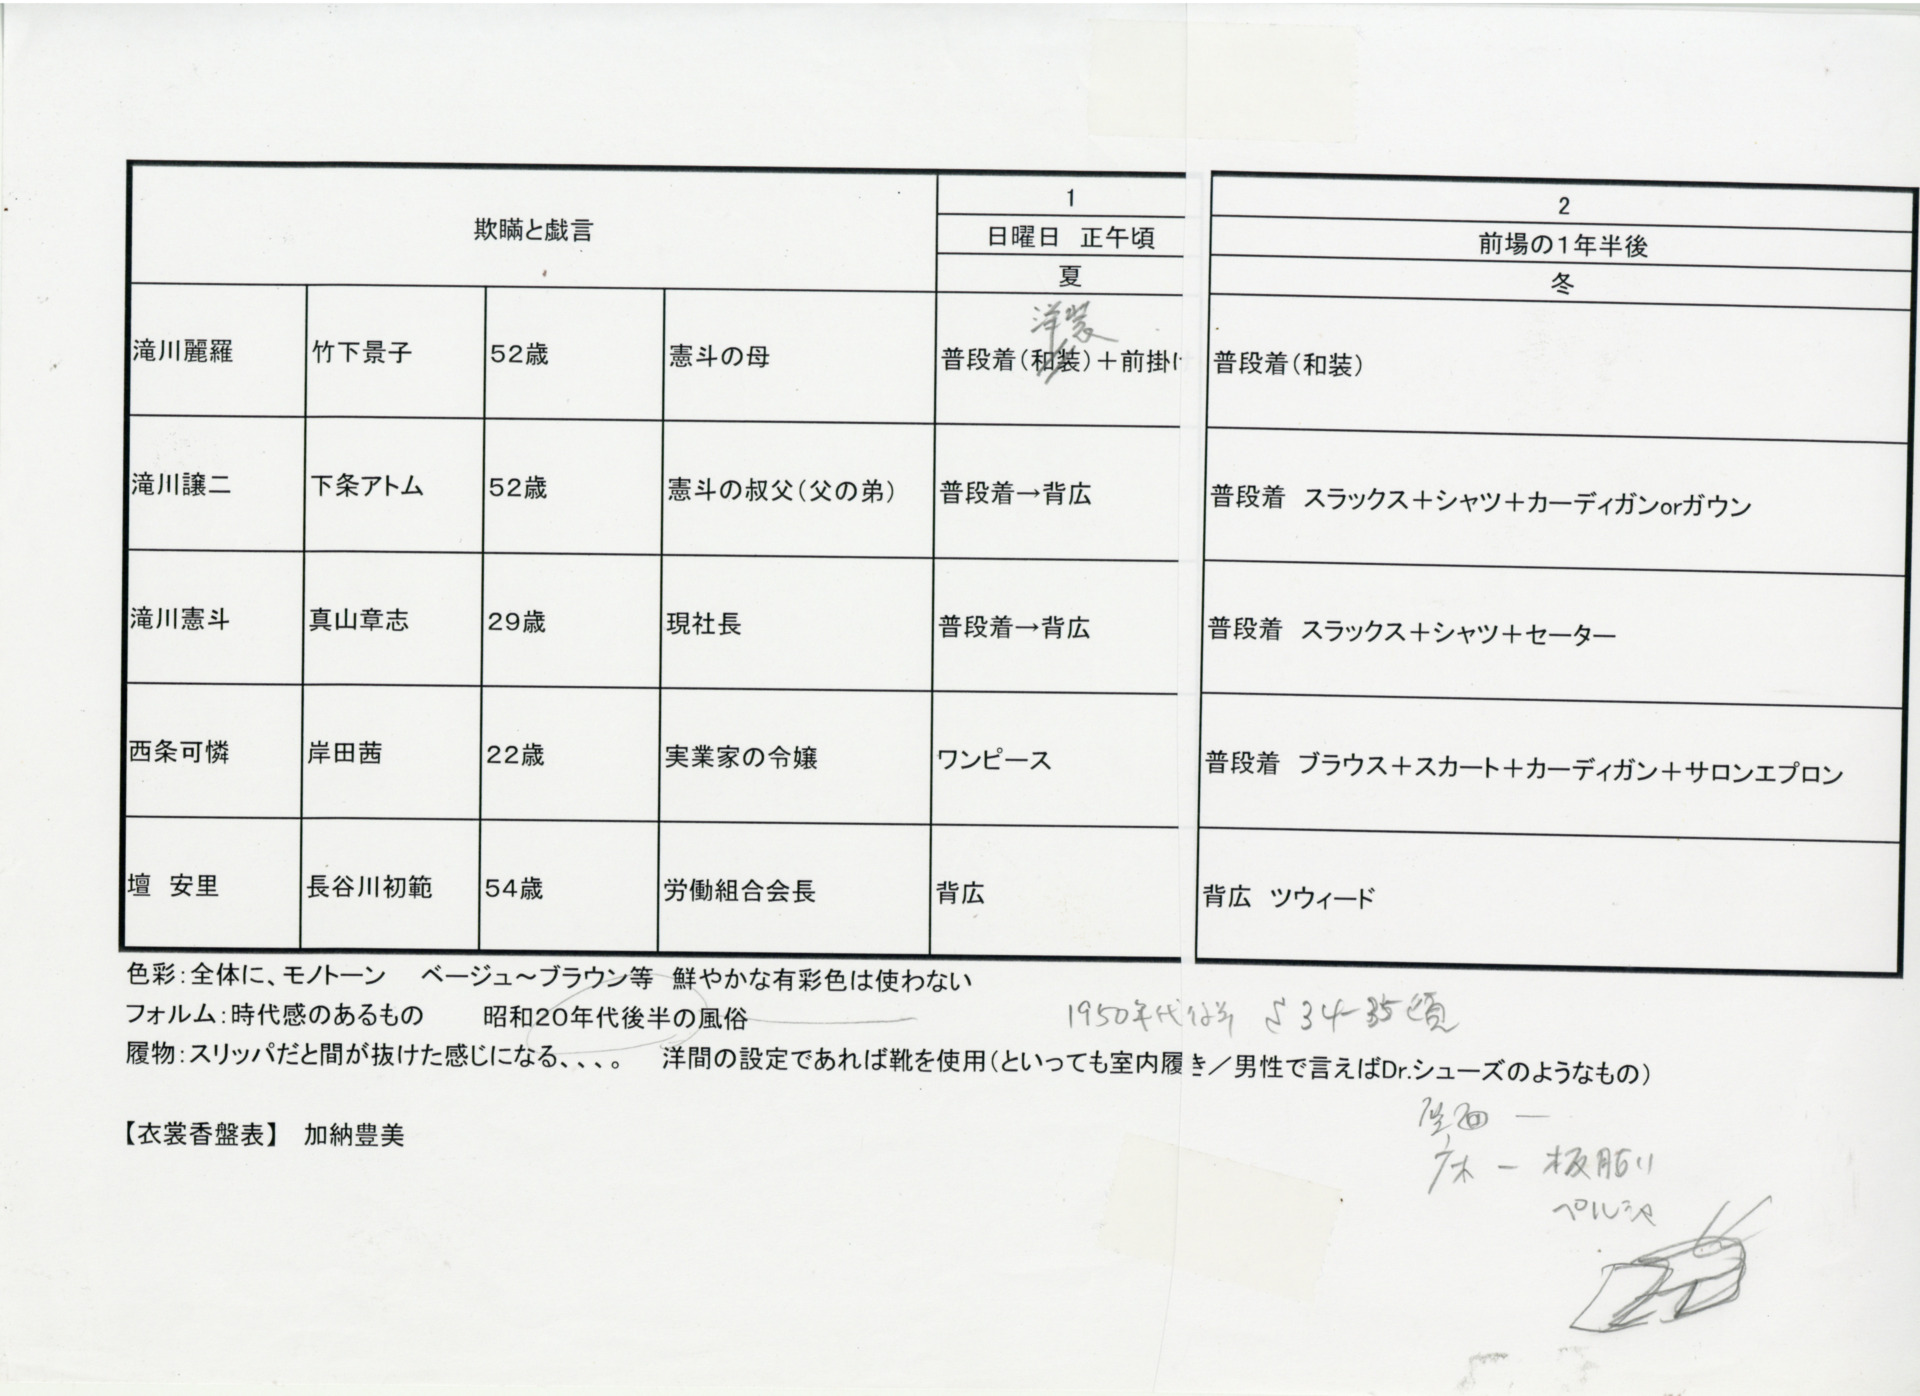 欺瞞と戯言 1 2
日曜日 正午頃 前場の1年半後
夏 冬
洋装
滝川麗羅 竹下景子 52歳 憲斗の母 普段着(和装)+前掛け 普段着(和装)
滝川譲二 下条アトム 52歳 憲斗の叔父(父の弟) 普段着→背広 普段着 スラックス+シャツ+カーディガンorガウン
滝川憲斗 真山章志 29歳 現社長 普段着→背広 普段着 スラックス+シャツ+セーター
西条可憐 岸田茜 22歳 実業家の令嬢 ワンピース 普段着 ブラウス+スカート+カーディガン+サロンエプロン
壇 安里 長谷川初範 54歳 労働組合会長 背広 背広 ツウィード
色彩:全体に、モノトーン ベージュ~ブラウン等 鮮やかな有彩色は使わない
フォルム:時代感のあるもの 昭和20年代後半の風俗 1950年代 S34-35頃
履物:スリッパだと間が抜けた感じになる、、、。 洋間の設定であれば靴を使用(といっても室内履き/男性で言えばDr.シューズのようなもの)
壁面 ー
【衣裳香盤表】 加納豊美
床 ー 板貼り
ペルシャ